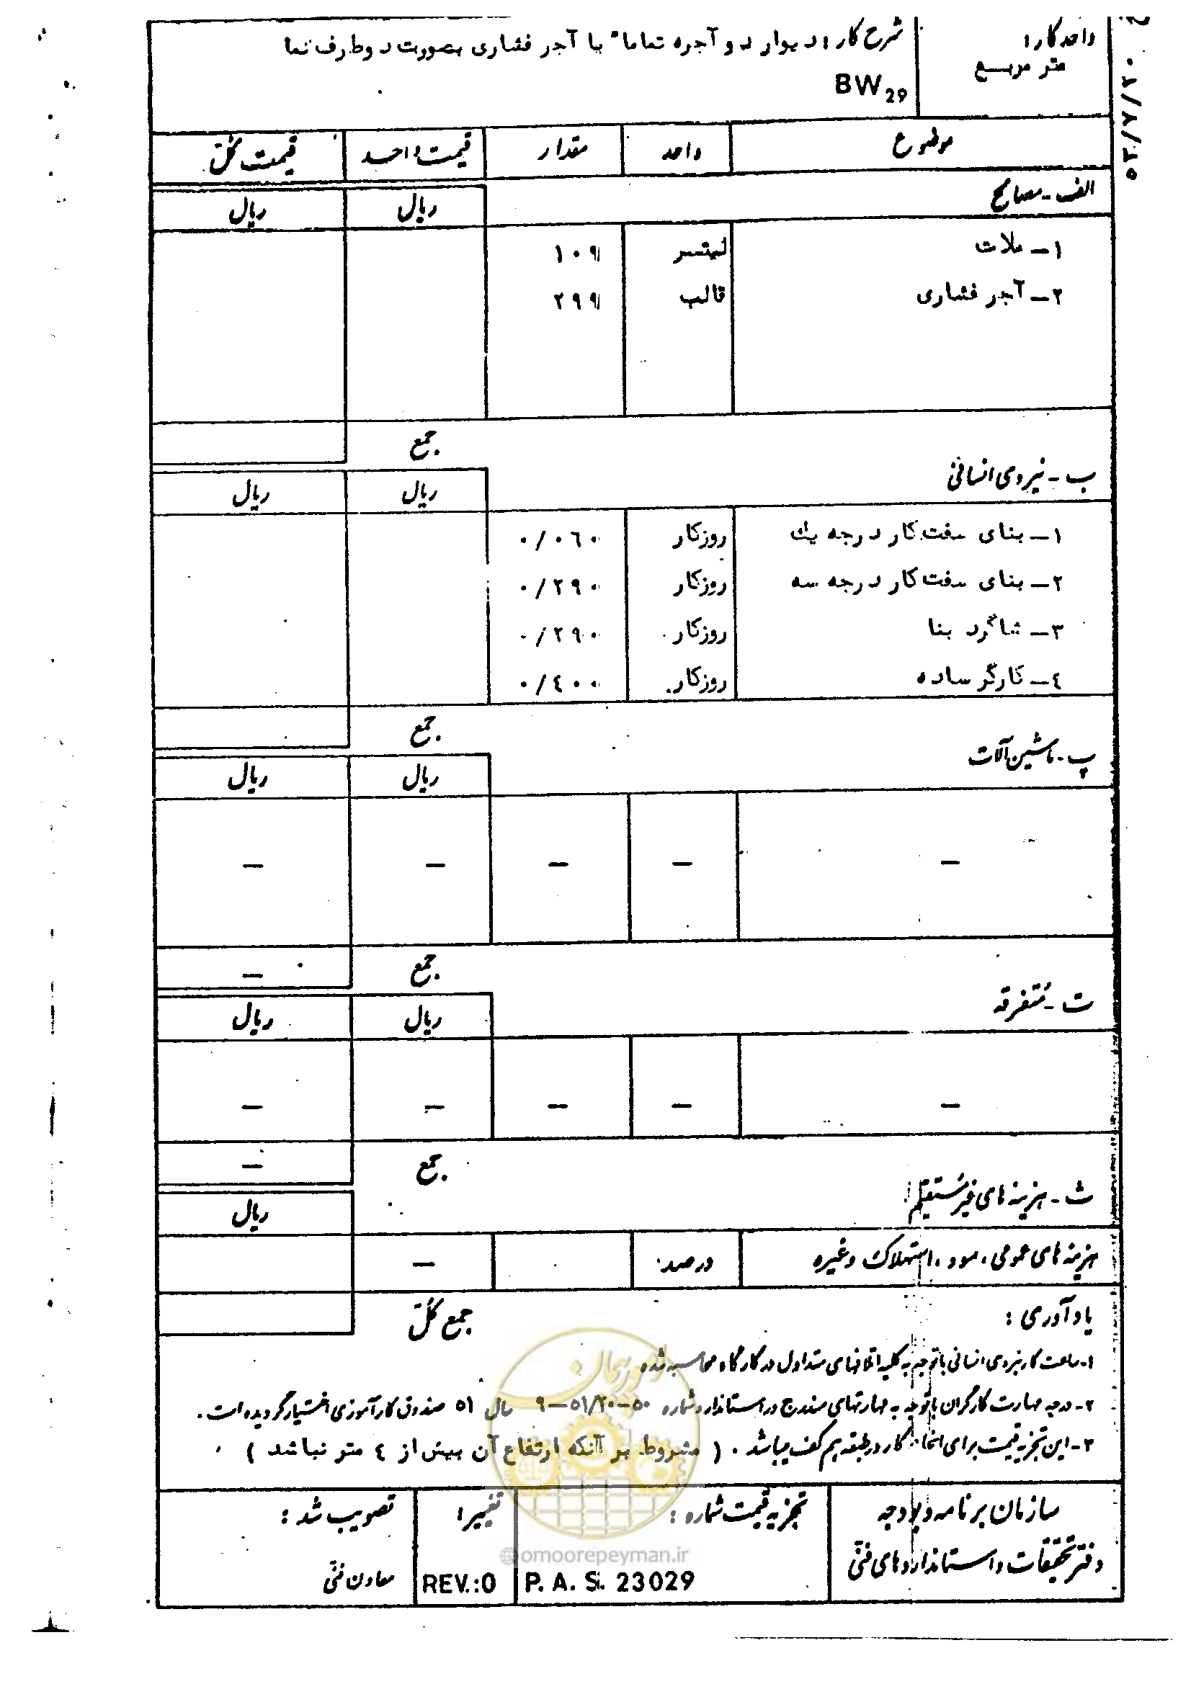 واحد کار:
متر مربع
شرح کار: دیوار دو آجره تماما" با آجر فشاری بصورت دوطرف نما
BW29
۵۳/۷/۳۰
موضوع واحد مقدار قیمت واحد قیمت کل
الف - مصالح ریال ریال
۱- ملات لیتر ۱۰۹/
۲- آجر فشاری قالب ۲۹۹/
جمع
ب - نیروی انسانی ریال ریال
۱- بنای سفت کار درجه یک روزکار ۰/۰۶۰
۲- بنای سفت کار درجه سه روزکار ۰/۲۹۰
۳- شاگرد بنا روزکار ۰/۲۹۰
۴- کارگر ساده روزکار ۰/۴۰۰
جمع
پ - ماشین آلات ریال ریال
— — — — —
جمع —
ت - متفرقه ریال ریال
— — — — —
جمع —
ث - هزینه های غیرمستقیم ریال
هزینه های عمومی، سود، استهلاک وغیره درصد —
جمع کل
یادآوری:
۱- ساعت کار نیروی انسانی باتوجه به کلیه اتلافهای متداول در کارگاه محاسبه شده
۲- درجه مهارت کارگران باتوجه به مهارتهای مندرج در استاندارد شماره ۵۰-۵۱/۲۰-۹ سال ۵۱ صندوق کارآموزی اختیار گردیده است.
۳- این تجزیه قیمت برای انجام کار در طبقه هم کف میباشد. (مشروط بر آنکه ارتفاع آن بیش از ۴ متر نباشد)
سازمان برنامه و بودجه
دفتر تحقیقات و استانداردهای فنی
تجزیه قیمت شماره:
P. A. S. 23029
تغییر:
REV.:0
تصویب شد:
معاون فنی
امور پیمان
@omoorepeyman.ir